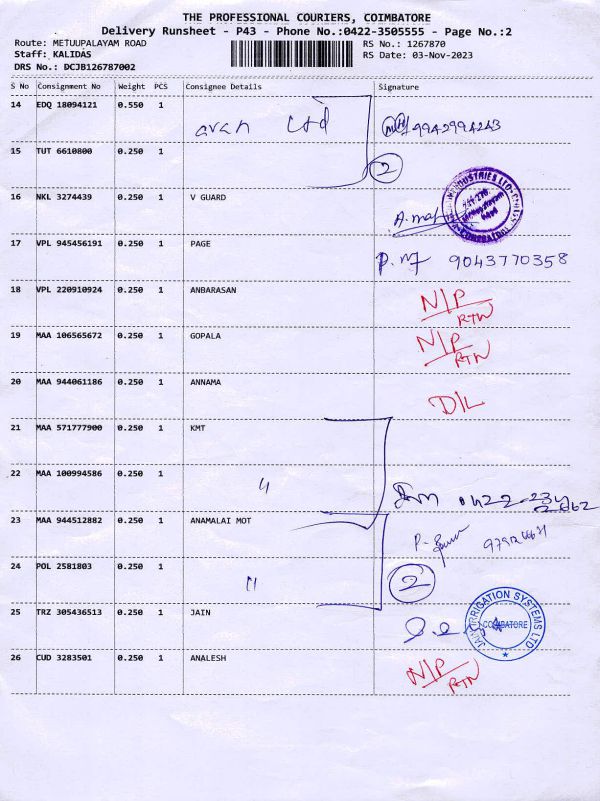 THE PROFESSIONAL COURIERS, COIMBATORE
Delivery Runsheet - P43 - Phone No.:0422-3505555 - Page No.:2
Route: METUUPALAYAM ROAD
Staff: KALIDAS
DRS No.: DCJB126787002
RS No.: 1267870
RS Date: 03-Nov-2023
S No Consignment No Weight PCS Consignee Details Signature
14 EDQ 18094121 0.550 1 avan Ltd 9942994243
15 TUT 6610800 0.250 1 2
16 NKL 3274439 0.250 1 V GUARD
17 VPL 945456191 0.250 1 PAGE 9043770358
18 VPL 220910924 0.250 1 ANBARASAN N/P RTN
19 MAA 106565672 0.250 1 GOPALA N/P RTN
20 MAA 944061186 0.250 1 ANNAMA D/L
21 MAA 571777900 0.250 1 KMT
22 MAA 100994586 0.250 1 " 0422-234
23 MAA 944512882 0.250 1 ANAMALAI MOT
24 POL 2581803 0.250 1 " 2
25 TRZ 305436513 0.250 1 JAIN JAIN IRRIGATION SYSTEMS LTD COIMBATORE
26 CUD 3283501 0.250 1 ANALESH N/P RTN